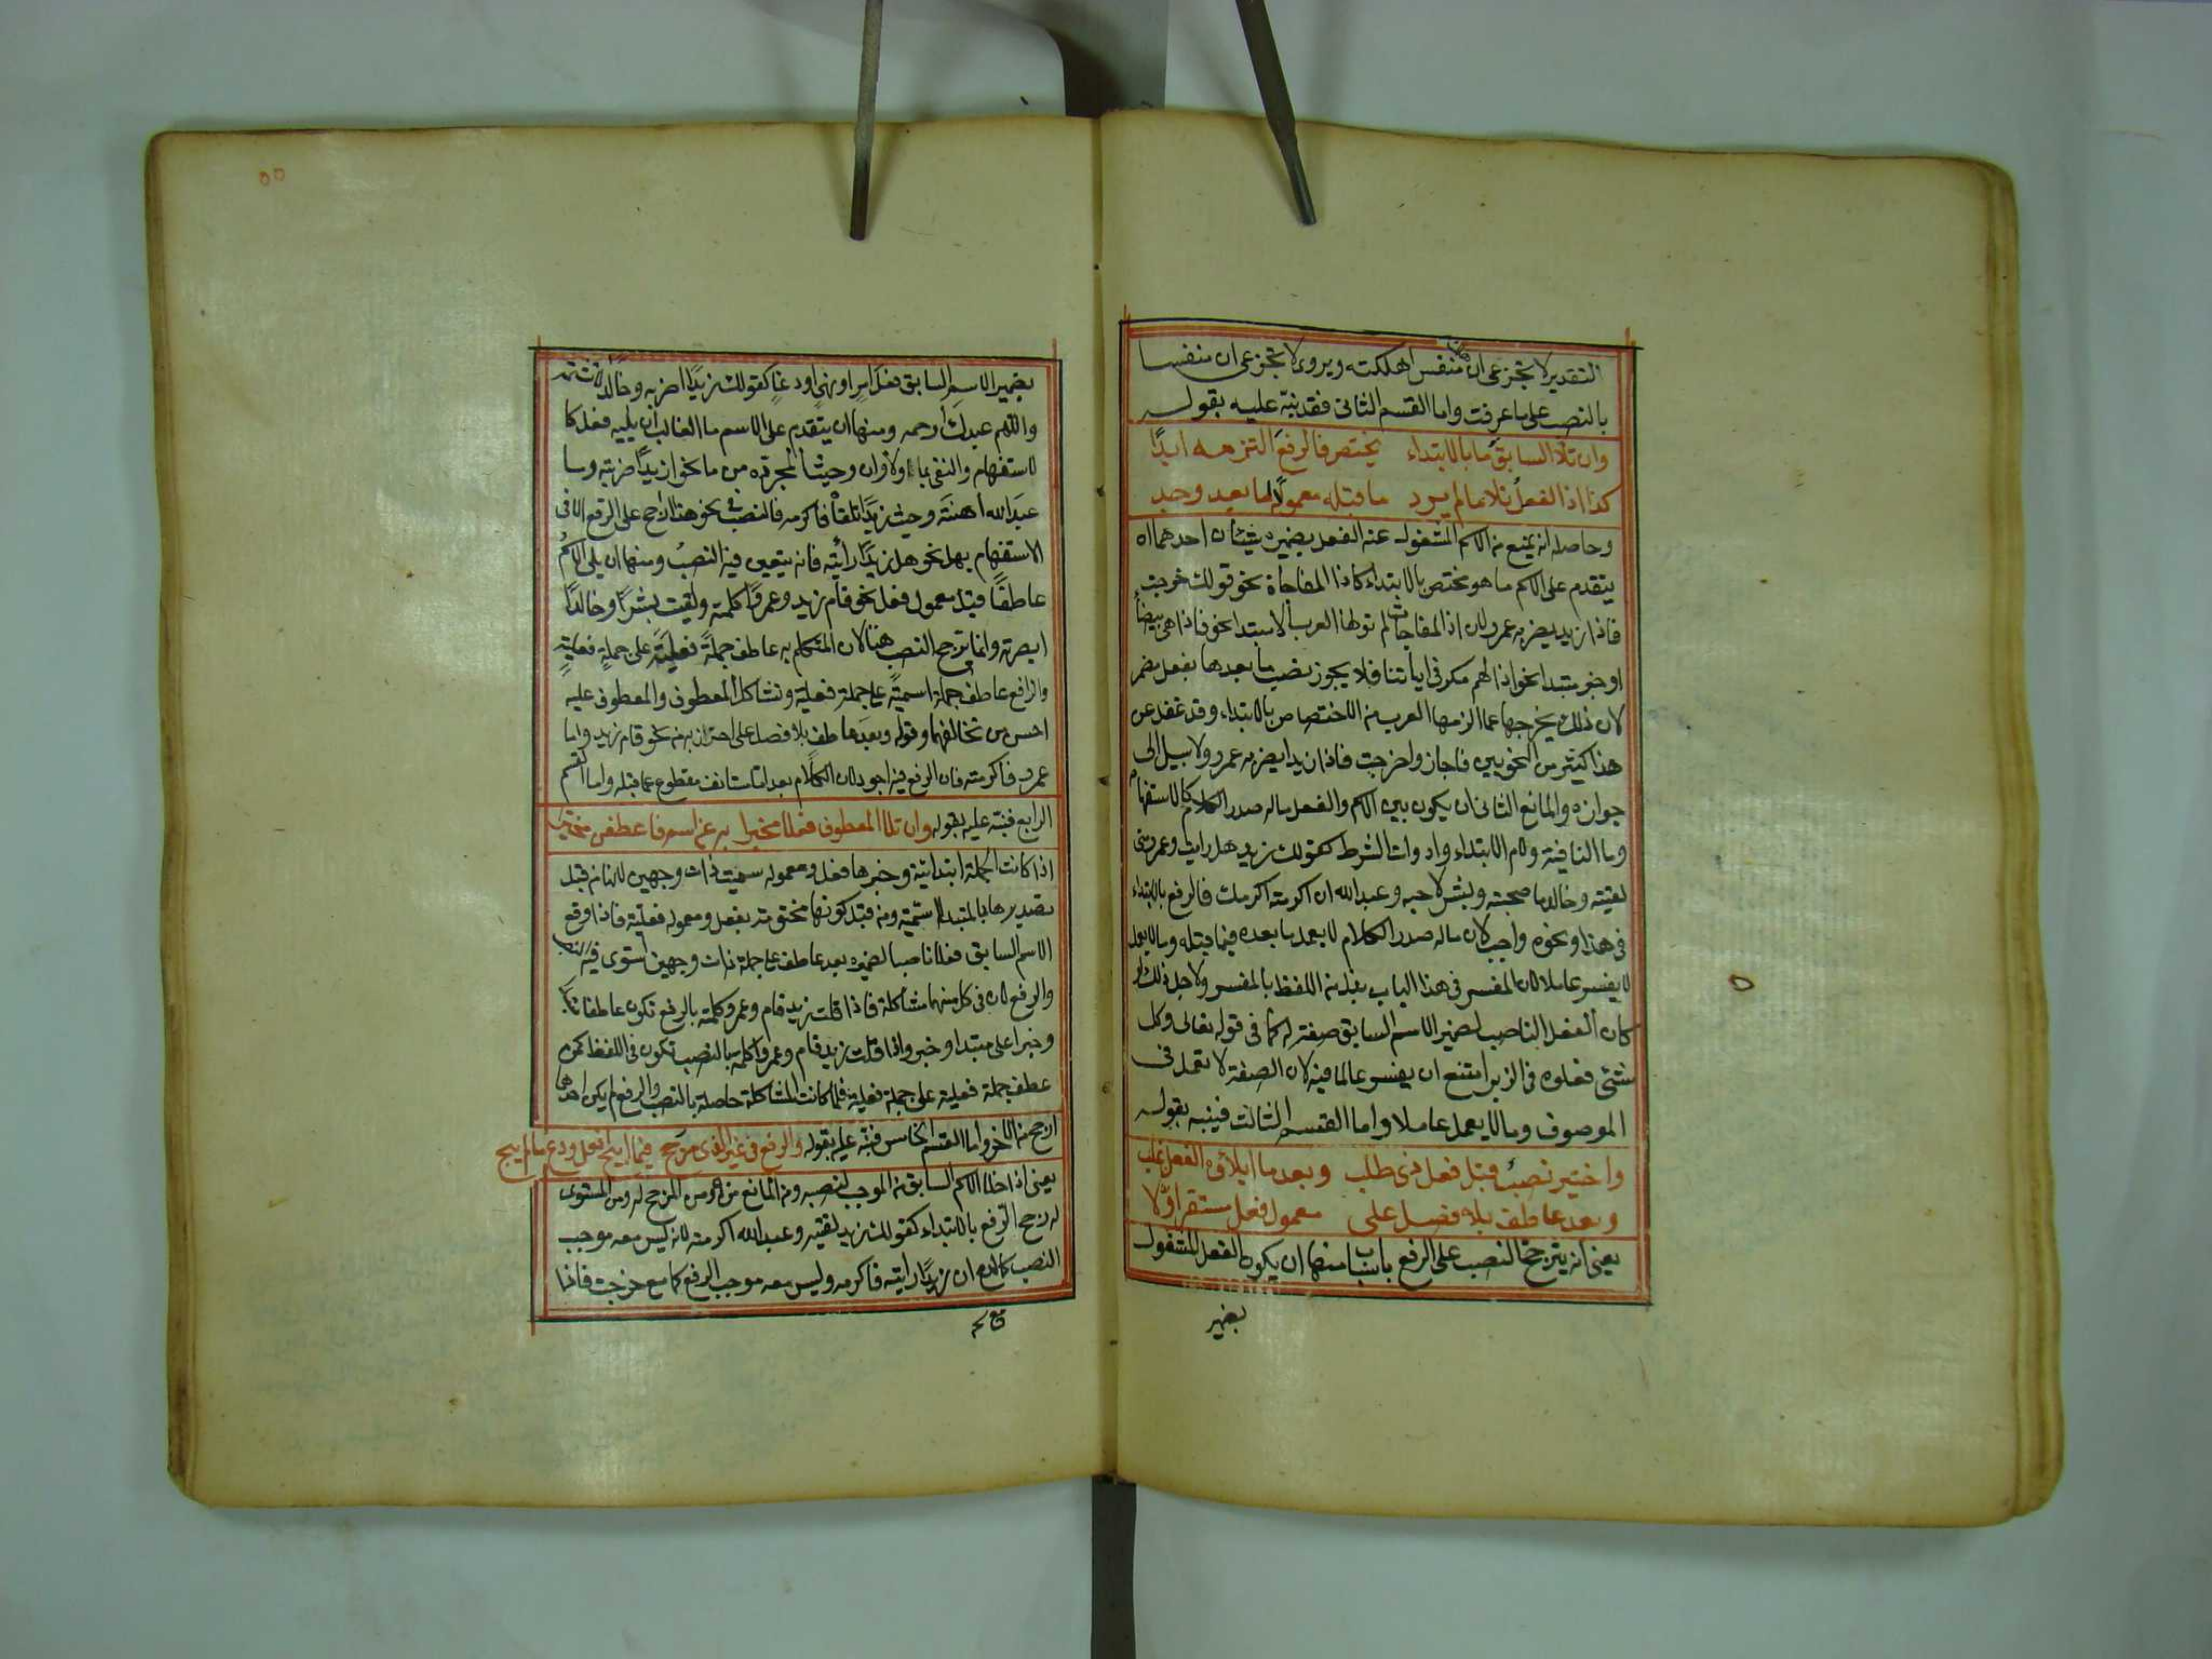 التقدير لا تجزعى ان هلك منفس اهلكته ويروى لا تجزعى ان منفسا
بالنصب على ما عرفت واما القسم الثانى فقد نبه عليه بقوله
وان تلا السابق ما بالابتداء يختص فالرفع التزمه ابدًا
كذا اذا الفعل تلا ما لم يرد ما قبله معمولا لما بعد وجد
وحاصله انه يمنع من الاسم المشغول عنه الفعل بضميره شيئان احدهما ان
يتقدم على الاسم ما هو مختص بالابتداء كاذا المفاجاة نحو قولك خرجت
فاذا زيد يضربه عمرو لان اذا المفاجات لم تولها العرب الا مبتدا نحو فاذا هى بيضاء
او خبر مبتدا نحو اذا لهم مكر فى اياتنا فلا يجوز نصب ما بعدها بفعل مضمر
لان ذلك يخرجها عما الزمها العرب من الاختصاص بالابتداء وقد غفل عن
هذا كثير من النحويين فاجازوا خرجت فاذا زيدا يضربه عمرو ولا سبيل الى
جوازه والمانع الثانى ان يكون بين الاسم والفعل ماله صدر الكلام كالاستفهام
وما النافية ولام الابتداء وادوات الشرط كقولك زيد هل رايت وعمرو متى
لقيته وخالد ما صحبته وبشر لاحبه وعبد الله ان اكرمته اكرمك فالرفع بالابتداء
فى هذا ونحوه واجب لان ماله صدر الكلام لا يعمل ما بعده فيما قبله وما لا يعمل
لا يفسر عاملا لان المفسر فى هذا الباب بدل من اللفظ بالمفسر ولاجل ذلك لو
كان الفعل الناصب لضمير الاسم السابق صفة له كما فى قوله تعالى وكل
شئ فعلوه فى الزبر امتنع ان يفسر عاملا فيه لان الصفة لا تعمل فى
الموصوف وما لا يعمل لا يفسر عاملا واما القسم الثالث فنبه بقوله
واختير نصب قبل فعل ذى طلب وبعد ما ايلاؤه الفعل غلب
وبعد عاطف بلا فصل على معمول فعل مستقر اولا
يعنى انه يترجح النصب على الرفع باسباب منها ان يكون الفعل المشغول
بضمير
٥٥
بضمير الاسم السابق فعل امر او نهى او دعاء كقولك زيدًا اضربه وخالدًا لا تشتمه
واللهم عبدك ارحمه ومنها ان يتقدم على الاسم ما الغالب ان يليه فعل كا
لاستفهام والنفى بما ولا وان وحيث المجرده من ما نحو ازيدًا ضربته وما
عبد الله اهنته وحيث زيدًا تلقاه فاكرمه فالنصب فى نحو هذا راجح على الرفع الا فى
الاستفهام بهل نحو هل زيدًا رأيته فانه يتعين فيه النصب ومنها ان يلى الاسم
عاطفًا قبله معمول فعل نحو قام زيد وعمرًا كلمته ولقيت بشرًا وخالدًا
ابصرته وانما يرجح النصب هنا لان المتكلم به عاطف جملة فعلية على جملة فعلية
والرافع عاطف جملة اسمية على جملة فعلية وتشاكل المعطوف والمعطوف عليه
احسن من تخالفهما وقوله وبعد عاطف بلا فصل على احترازا به من نحو قام زيد واما
عمرو فاكرمته فان الرفع فيه اجود لان الكلام بعد اما مستانف مقطوع عما قبله واما القسم
الرابع فنبه عليه بقوله وان تلا المعطوف فعلا مخبرا به عن اسم فاعطفن مخيرا
اذا كانت الجملة ابتدائية وخبرها فعل ومعموله سميت ذات وجهين لانها من قبل
تصديرها بالمبتدا اسمية ومن قبل كونها مختومة بفعل ومعموله فعلية فاذا وقع
الاسم السابق فعلا ناصبا لضميره بعد عاطف على جملة ذات وجهين استوى فيه النصب
والرفع لان فى كل منهما مشاكلة فاذا قلت زيد قام وعمرو كلمته بالرفع تكون عاطفا مبتدا
وخبرا على مبتدا وخبر واذا قلت زيد قام وعمرًا كلمته بالنصب تكون فى اللفظ كمن
عطف جملة فعلية على جملة فعلية فلما كانت المشاكلة حاصلة بالنصب والرفع لم يكن احدهما
ارجح من الاخر واما القسم الخامس فنبه عليه بقوله والرفع فى غير الذى مر رجح فما ابيح افعل ودع ما لم يبح
يعنى اذا خلا الاسم السابق من الموجب لنصبه ومن المانع منه ومن المرجح له ومن المستوى
له رجح الرفع بالابتداء كقولك زيد لقيته وعبد الله اكرمته لانه ليس معه موجب
النصب كما مع ان زيدًا رايته فاكرمه وليس معه موجب الرفع كما مع خرجت فاذا